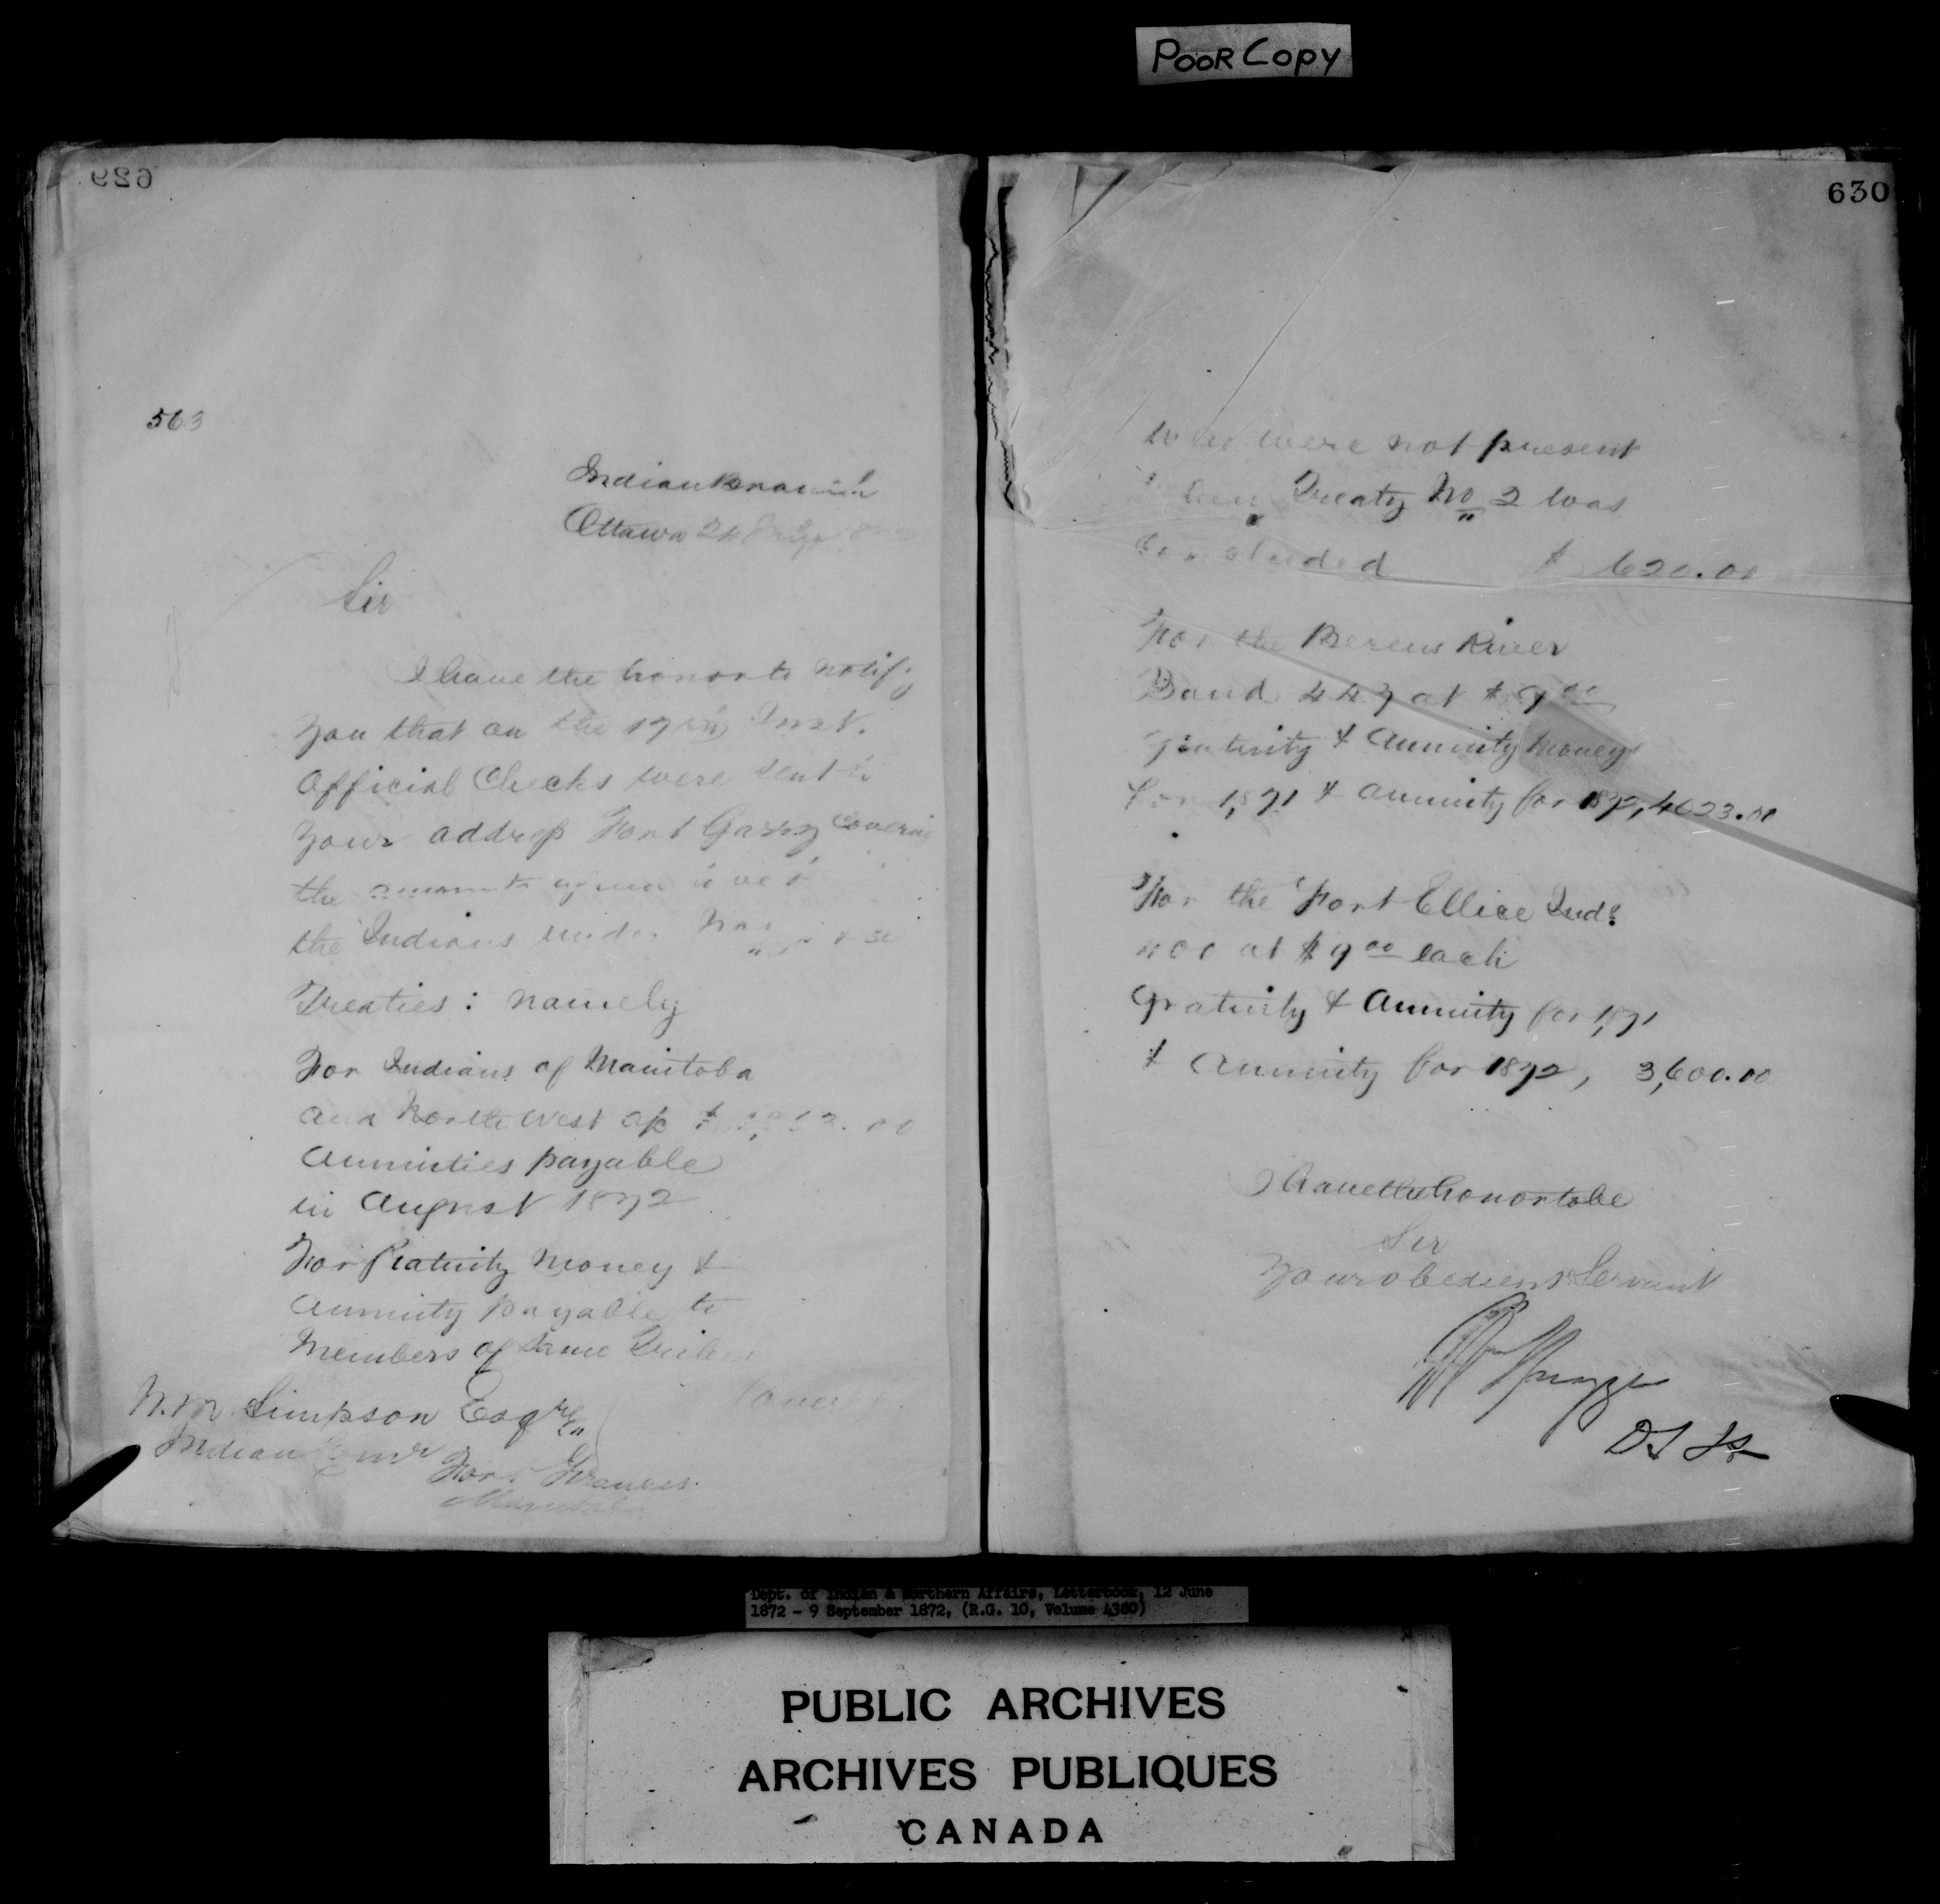 POOR COPY
629
563
Indian Branch
Ottawa 24 July
Sir
I have the honor to notify
you that on the 17th Inst.
Official Checks were sent to
your address Fort Garry covering
the
the Indians under Nos
Treaties: namely
For Indians of Manitoba
and North West
Annuities payable
in August 1872
For Gratuity Money &
Annuity payable to
Members of same Tribes
(over
W. M. Simpson Esqre
Indian Comr
Fort Frances.
Manitoba
630
who were not present
when Treaty No 2 was
concluded $ 620.00
For the Berens River
Band 447 at $9.00
Gratuity & Annuity Money
for 1871 & Annuity for 1872, 4023.00
For the Fort Ellice Inds
400 at $9.00 each
Gratuity & Annuity for 1871
& Annuity for 1872, 3,600.00
I have the honor to be
Sir
Your obedient Servant
Dept. of Indian & Northern Affairs, Letterbook, 12 June
1872 - 9 September 1872, (R.G. 10, Volume 4380)
PUBLIC ARCHIVES
ARCHIVES PUBLIQUES
CANADA